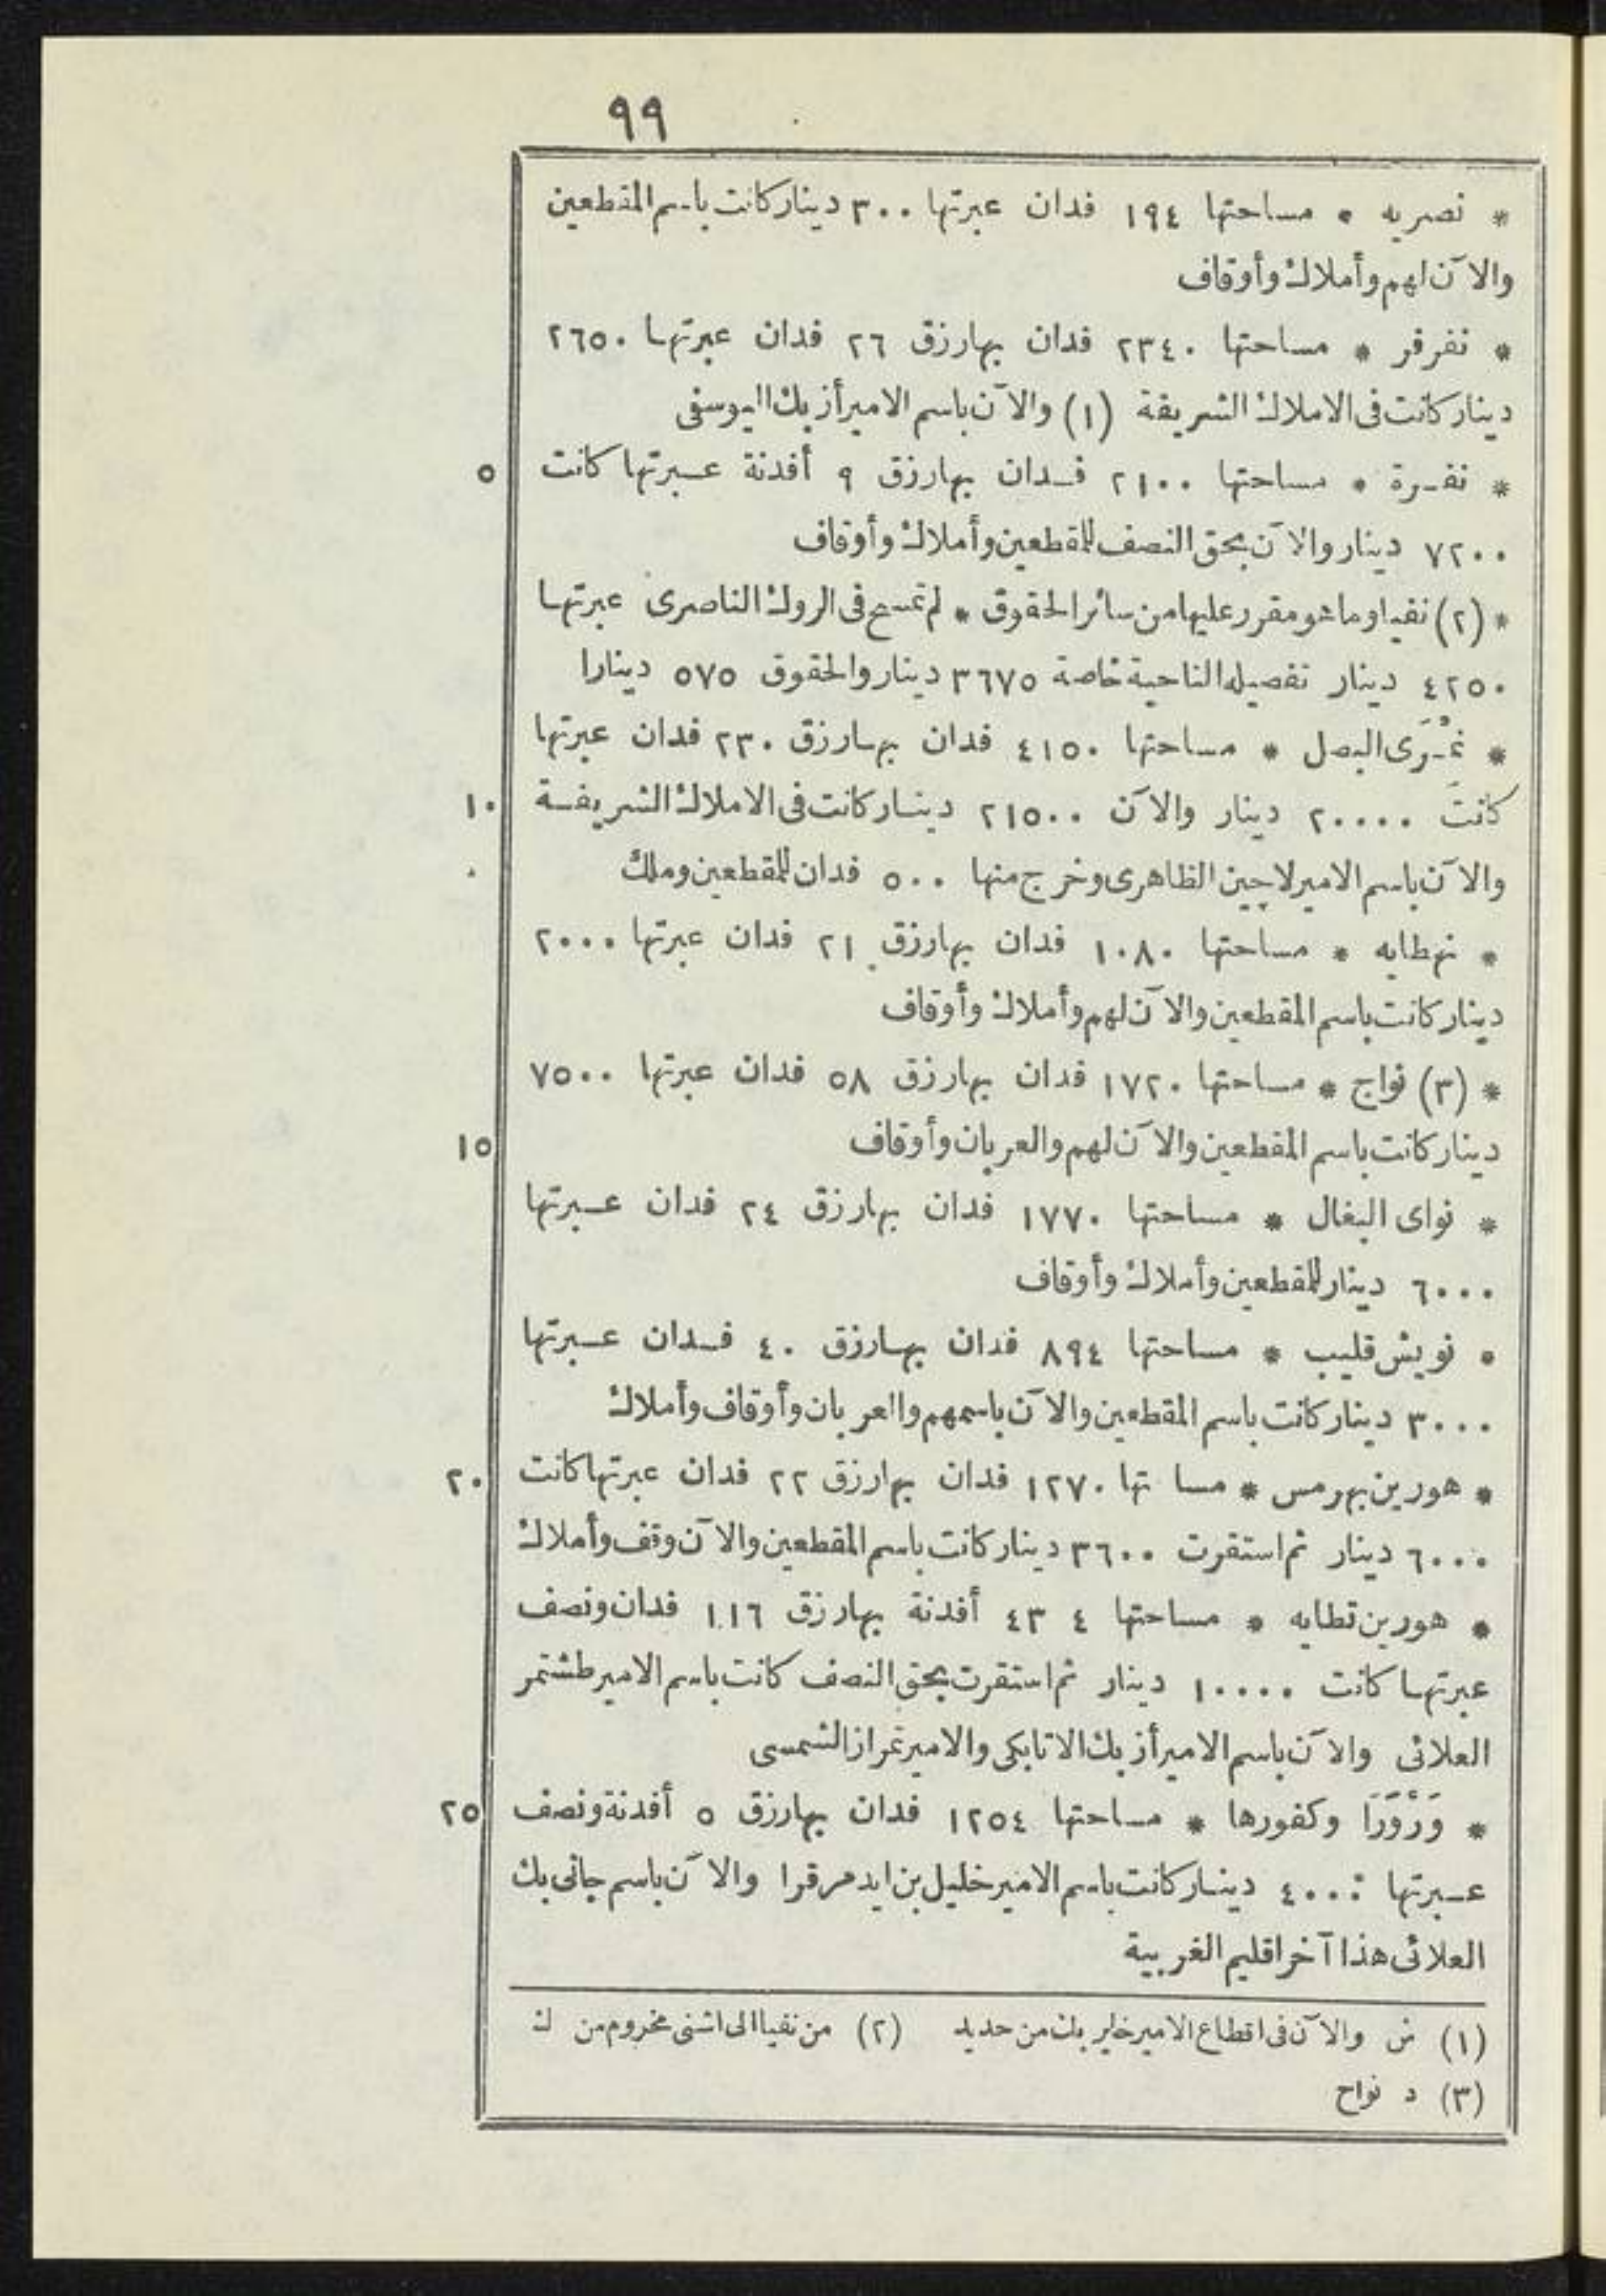 ٩٩
* نصريه * مساحتها ١٩٤ فدان عبرتها ٣٠٠ دينار كانت باسم المقطعين
والآن لهم وأملاك وأوقاف
* نفرفر * مساحتها ٢٣٤٠ فدان بها رزق ٢٦ فدان عبرتها ٢٦٥٠
دينار كانت فى الاملاك الشريفة (١) والآن باسم الامير أزبك اليوسفى
٥ * نفرة * مساحتها ٢١٠٠ فدان بها رزق ٩ أفدنة عبرتها كانت
٧٢٠٠ دينار والآن بحق النصف للمقطعين وأملاك وأوقاف
* (٢) نفيا وما هو مقرر عليها من سائر الحقوق * لم تمسح فى الروك الناصرى عبرتها
٤٢٥٠ دينار تفصيله الناحية خاصة ٣٦٧٥ دينار والحقوق ٥٧٥ دينارا
* نمرى البصل * مساحتها ٤١٥٠ فدان بها رزق ٢٣٠ فدان عبرتها
١٠ كانت ٢٠٠٠٠ دينار والآن ٢١٥٠٠ دينار كانت فى الاملاك الشريفة
والآن باسم الامير لاجين الظاهرى وخرج منها ٥٠٠ فدان للمقطعين وملك
* نهطايه * مساحتها ١٠٨٠ فدان بها رزق ٢١ فدان عبرتها ٢٠٠٠
دينار كانت باسم المقطعين والآن لهم وأملاك وأوقاف
* (٣) نواج * مساحتها ١٧٢٠ فدان بها رزق ٥٨ فدان عبرتها ٧٥٠٠
١٥ دينار كانت باسم المقطعين والآن لهم والعربان وأوقاف
* نواى البغال * مساحتها ١٧٧٠ فدان بها رزق ٢٤ فدان عبرتها
٦٠٠٠ دينار للمقطعين وأملاك وأوقاف
* نويش قليب * مساحتها ٨٩٤ فدان بها رزق ٤٠ فدان عبرتها
٣٠٠٠ دينار كانت باسم المقطعين والآن باسمهم والعربان وأوقاف وأملاك
٢٠ * هورين بهرمس * مسا تها ١٢٧٠ فدان بها رزق ٢٢ فدان عبرتها كانت
٦٠٠٠ دينار ثم استقرت ٣٦٠٠ دينار كانت باسم المقطعين والآن وقف وأملاك
* هورين تطايه * مساحتها ٤ ٤٣ أفدنة بها رزق ١١٦ فدان ونصف
عبرتها كانت ١٠٠٠٠ دينار ثم استقرت بحق النصف كانت باسم الامير طشتمر
العلائى والآن باسم الامير أزبك الاتابكى والامير تمراز الشمسى
٢٥ * وَرْوَرَا وكفورها * مساحتها ١٢٥٤ فدان بها رزق ٥ أفدنة ونصف
عبرتها ٤٠٠٠ دينار كانت باسم الامير خليل بن ايدمر قرا والآن باسم جانى بك
العلائى هذا آخر اقليم الغربية
(١) ش والآن فى اقطاع الامير خاير بك من حديد (٢) من نفيا الى اشنى مخروم من ك
(٣) د نواح